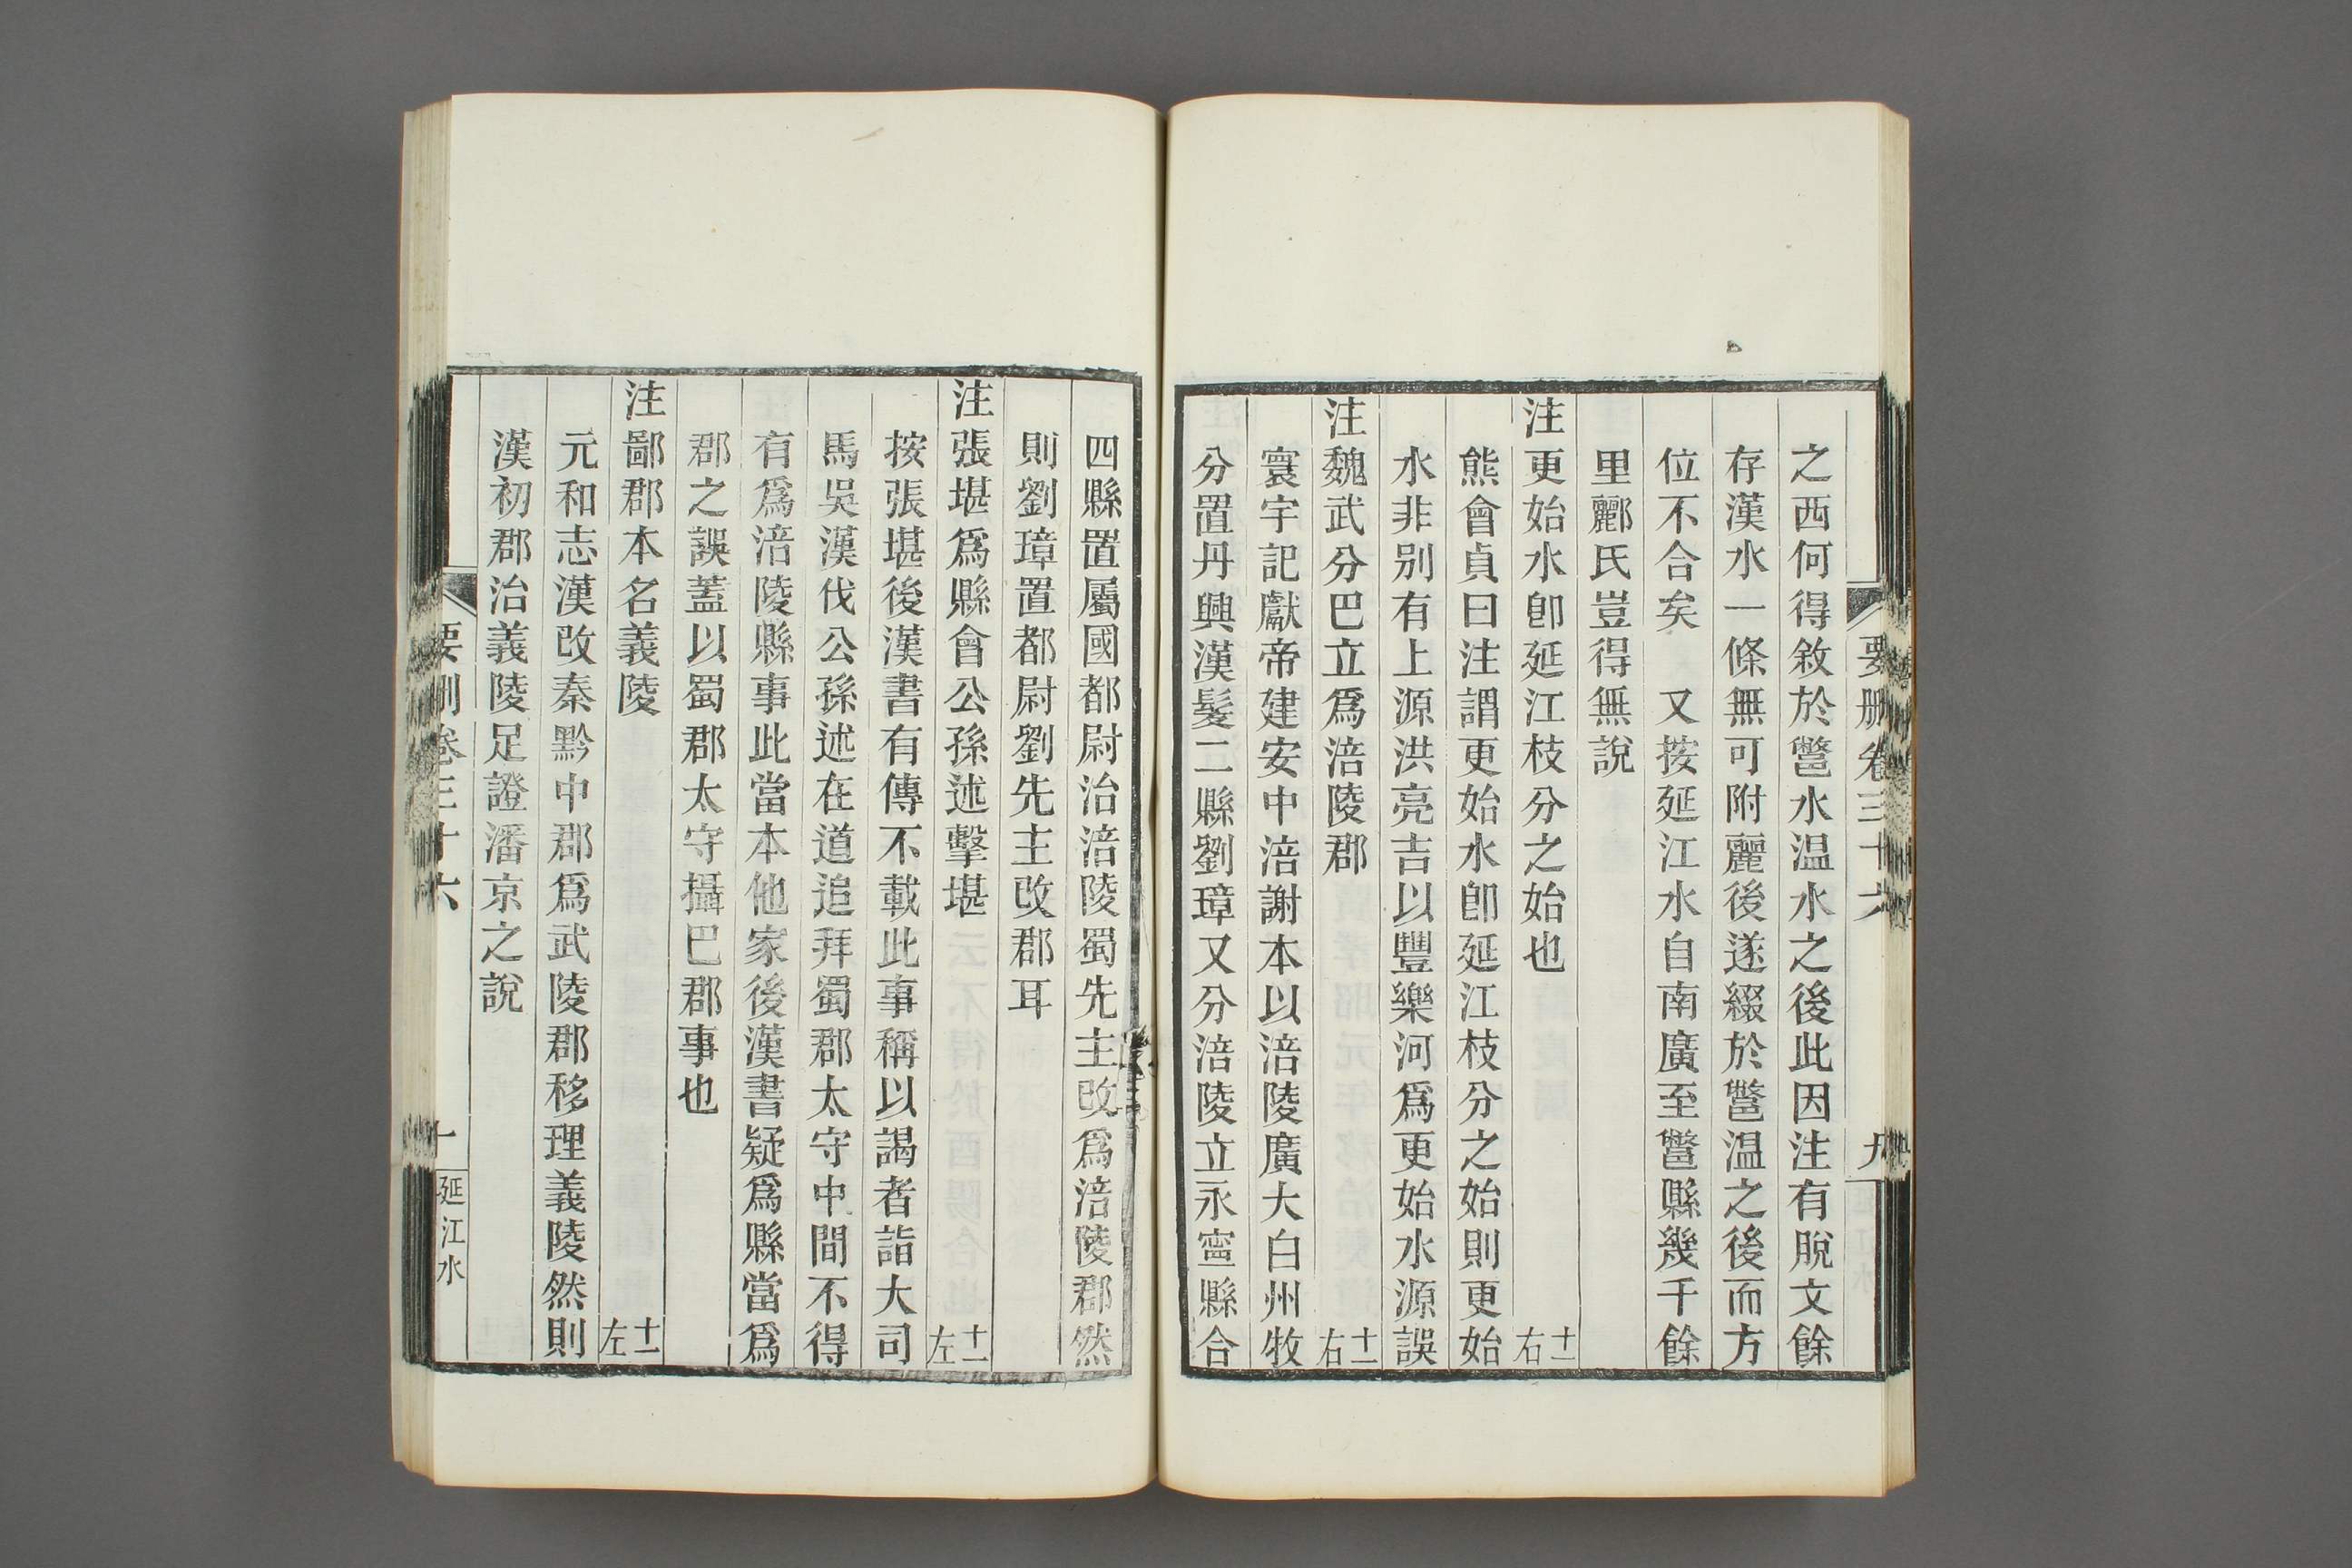 要刪卷三十六 九
之西何得敘於鄨水温水之後此因注有脫文餘
存漢水一條無可附麗後遂綴於鄨温之後而方
位不合矣 又按延江水自南廣至鄨縣幾千餘
里酈氏豈得無說
注更始水卽延江枝分之始也 十一右
熊會貞曰注謂更始水卽延江枝分之始則更始
水非别有上源洪亮吉以豐樂河爲更始水源誤
注魏武分巴立爲涪陵郡 十一右
寰宇記獻帝建安中涪謝本以涪陵廣大白州牧
分置丹興漢髮二縣劉璋又分涪陵立永寧縣合
四縣置屬國都尉治涪陵蜀先主改爲涪陵郡然
則劉璋置都尉劉先主改郡耳
注張堪爲縣會公孫述擊堪 十一左
按張堪後漢書有傳不載此事稱以謁者詣大司
馬吳漢伐公孫述在道追拜蜀郡太守中間不得
有爲涪陵縣事此當本他家後漢書疑爲縣當爲
郡之誤蓋以蜀郡太守攝巴郡事也
注鄙郡本名義陵 十一左
元和志漢改秦黔中郡爲武陵郡移理義陵然則
漢初郡治義陵足證潘京之說
要刪卷三十六 十 延江水